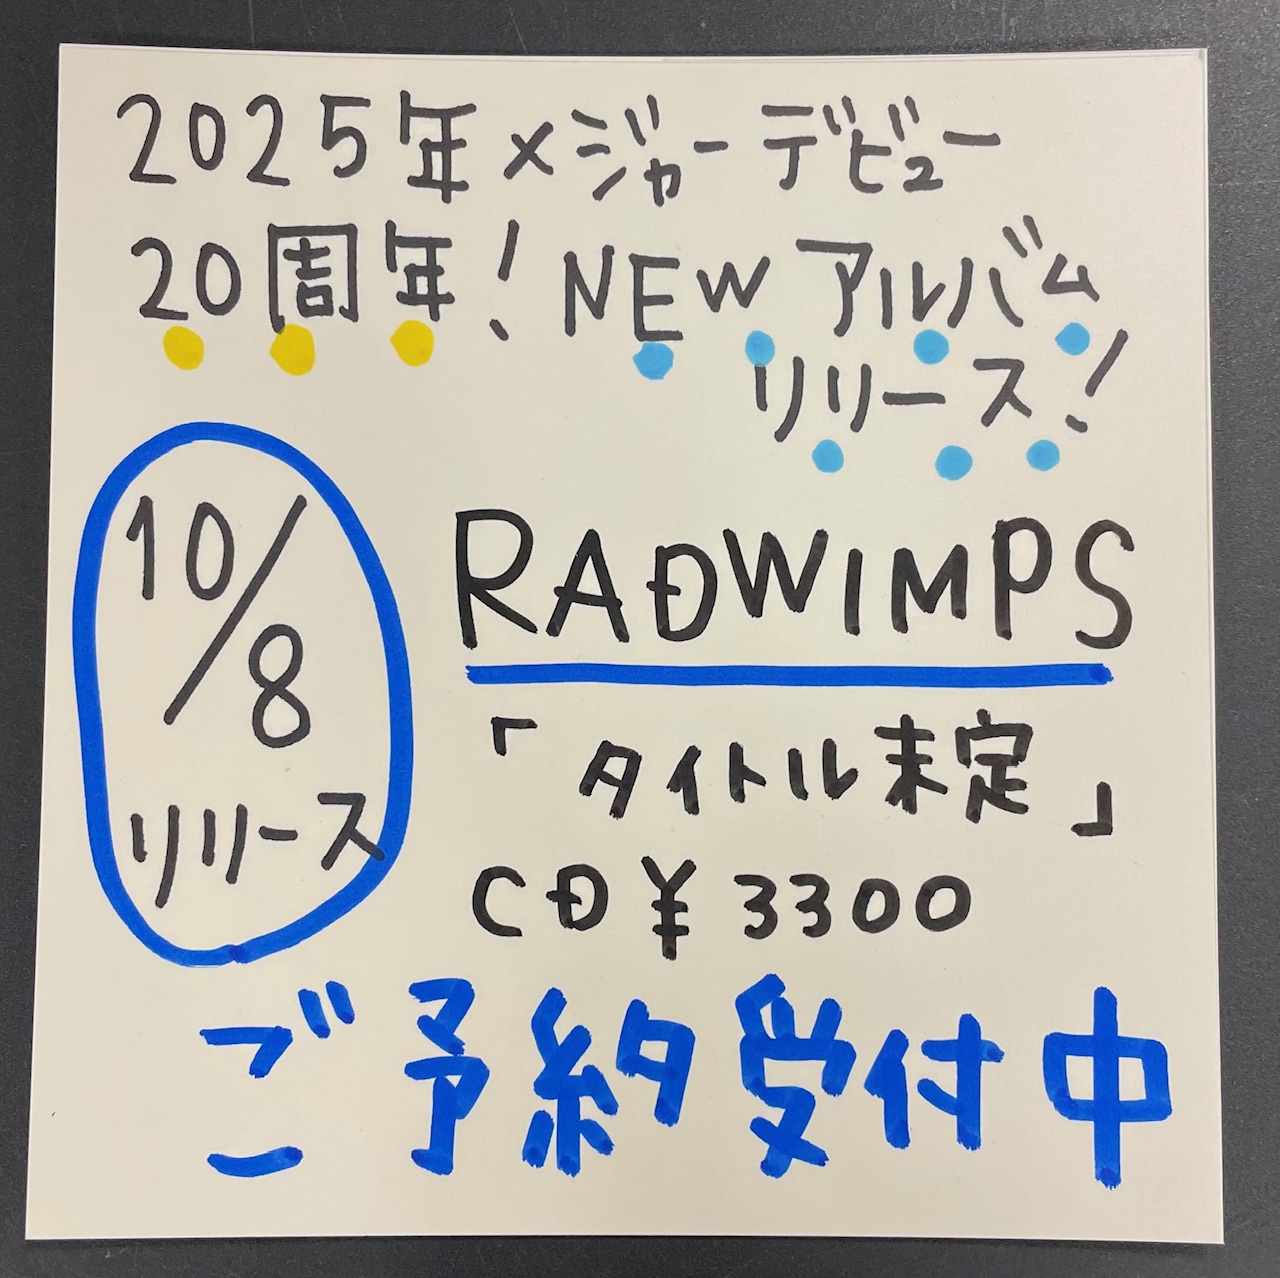 2025年メジャーデビュー
20周年！NEWアルバム
リリース！
10/8
リリース
RADWIMPS
「タイトル未定」
CD¥3300
ご予約受付中